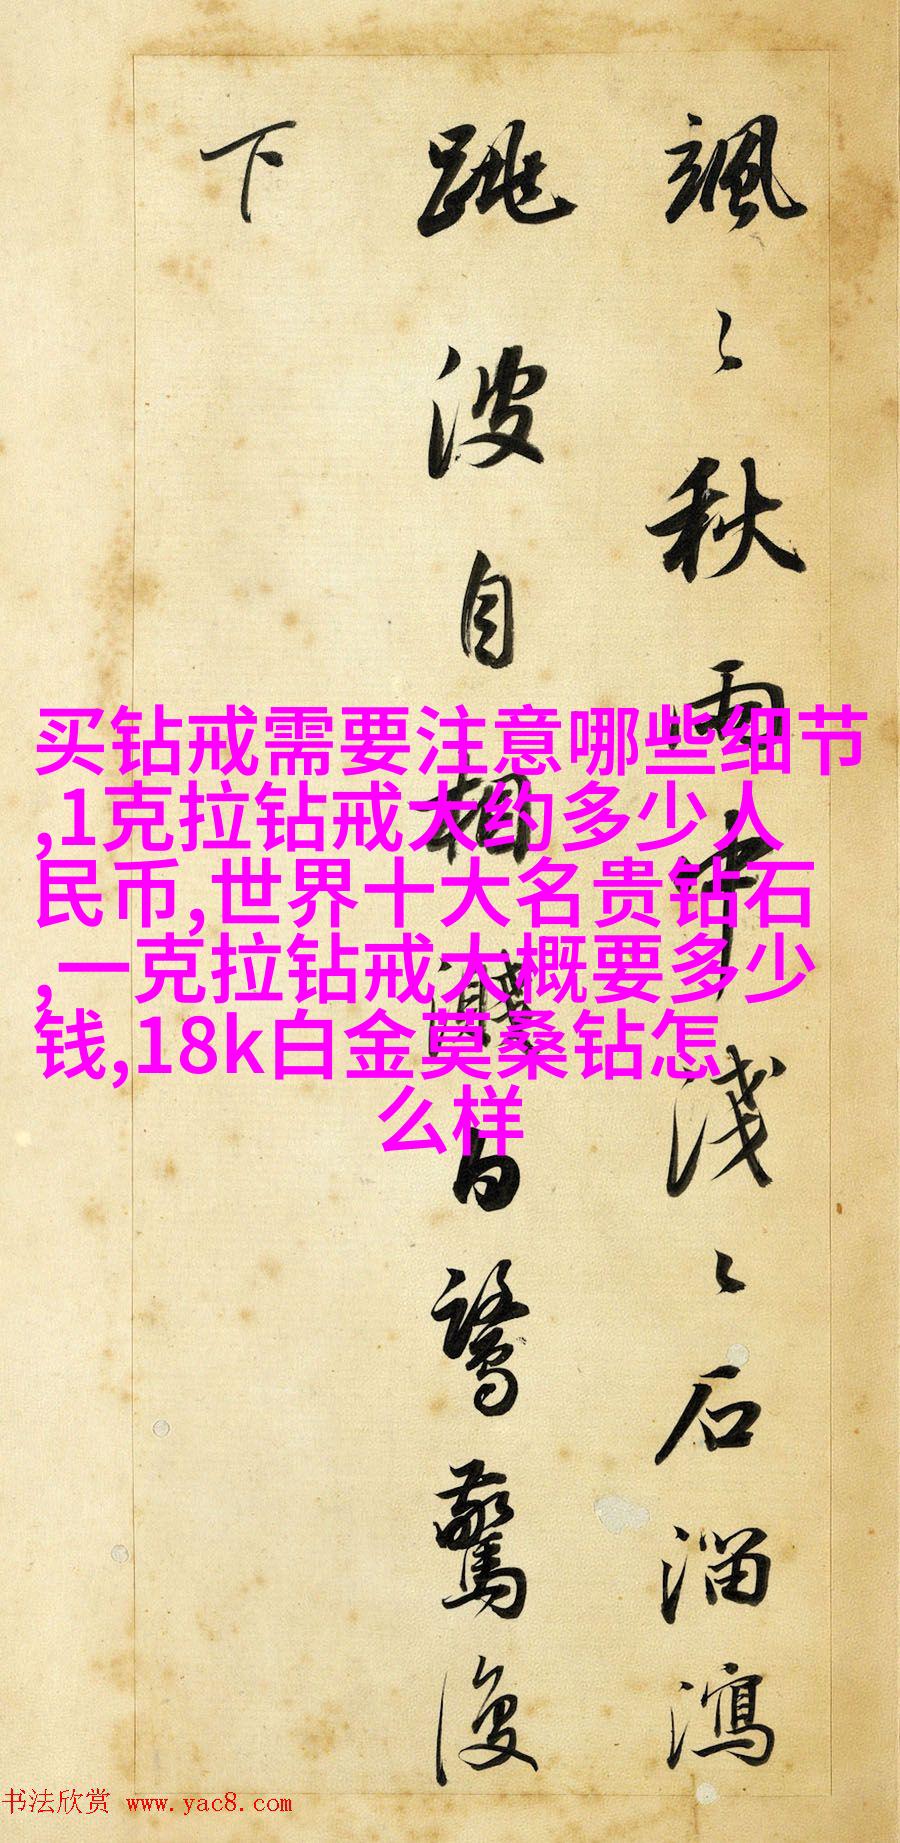 颯〻秋雨中淺〻石溜瀉
跳波自相濺白鷺驚復
下
买钻戒需要注意哪些细节
,1克拉钻戒大约多少人
民币,世界十大名贵钻石
,一克拉钻戒大概要多少
钱,18k白金莫桑钻怎
么样
书法欣赏 www.yac8.com